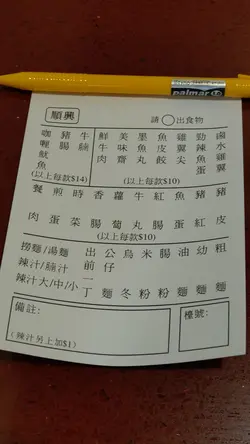 順興
請○出食物
咖喱魷魚
豬腸
牛腩
(以上每款$14)
鮮牛肉
美味齋
墨魚丸
魚皮餃
雞翼尖
勁辣魚蛋
鹵水雞翼
(以上每款$10)
餐肉
煎蛋
時菜
香腸
蘿蔔
牛丸
紅腸
魚蛋
豬紅
豬皮
(以上每款$10)
撈麵/湯麵
辣汁/腩汁
辣汁大/中/小
出前一丁
公仔麵
烏冬
米粉
腸粉
油麵
幼麵
粗麵
備註:
(辣汁另上加$1)
檯號:
palmar